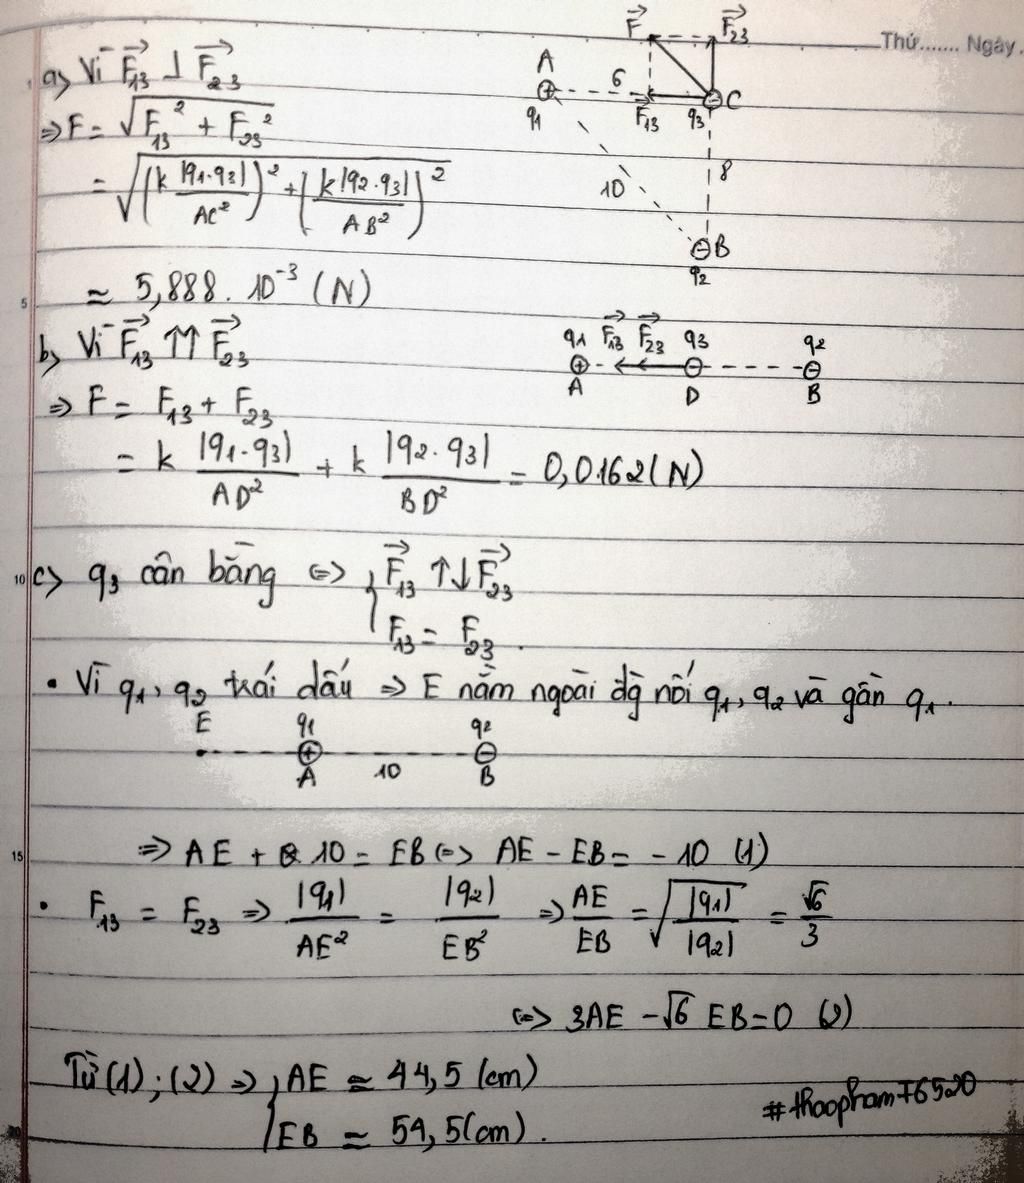 Thứ....... Ngày.
a) Vì F₁₃ ⊥ F₂₃
⇒ F = √(F₁₃² + F₂₃²)
= √((k |q1.q3| / AC²)² + (k |q2.q3| / AB²)²)
≈ 5,888. 10⁻³ (N)
F F₂₃
A 6 C
q1 F₁₃ q3
10 8
B
q2
5
b) Vì F₁₃ ↑↑ F₂₃
⇒ F = F₁₃ + F₂₃
= k |q1.q3| / AD² + k |q2.q3| / BD² = 0,0162(N)
q1 F₁₃ F₂₃ q3 q2
A D B
10
c) q3 cân bằng ⇔ { F₁₃ ↑↓ F₂₃
F₁₃ = F₂₃.
• Vì q1, q2 trái dấu ⇒ E nằm ngoài đg nối q1, q2 và gần q1.
E q1 q2
A 10 B
15
⇒ AE + 10 = EB ⇔ AE - EB = - 10 (1)
• F₁₃ = F₂₃ ⇒ |q1| / AE² = |q2| / EB² ⇒ AE / EB = √(|q1| / |q2|) = √6 / 3
⇔ 3AE - √6 EB = 0 (2)
Từ (1); (2) ⇒ { AE ≃ 44,5 (cm)
EB ≃ 54,5(cm).
#thaopham76520